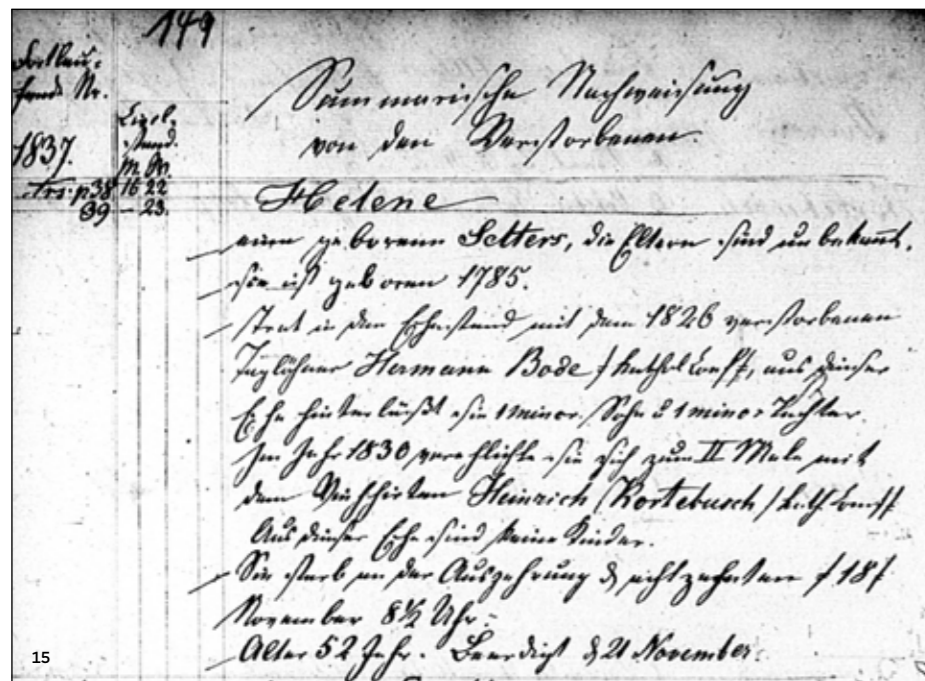 149
Fortlau-
fende Nr.
Civil-
stand.
1837.
M. W.
Trs. p 38 16 22
39 – 23.
Summarische Nachweisung
von den Verstorbenen.
Helene
eine geborene Setters, die Eltern sind unbekannt.
sie ist geboren 1785.
Trat in den Ehestand mit dem 1826 verstorbenen
Taglöhner Hermann Bode / kathol. Conf /, aus dieser
Ehe hinterläßt sie 1 minor. Sohn u 1 minor Tochter.
Im Jahr 1830 verehlichte sie sich zum II Male mit
dem Viehhirten Heinrich Kortebusch / kath. Conf /
Aus dieser Ehe sind keine Kinder.
Sie starb an der Auszehrung d achtzehnten / 18 /
November 8½ Uhr.
Alter 52 Jahr. Beerdigt d 21 November.
15